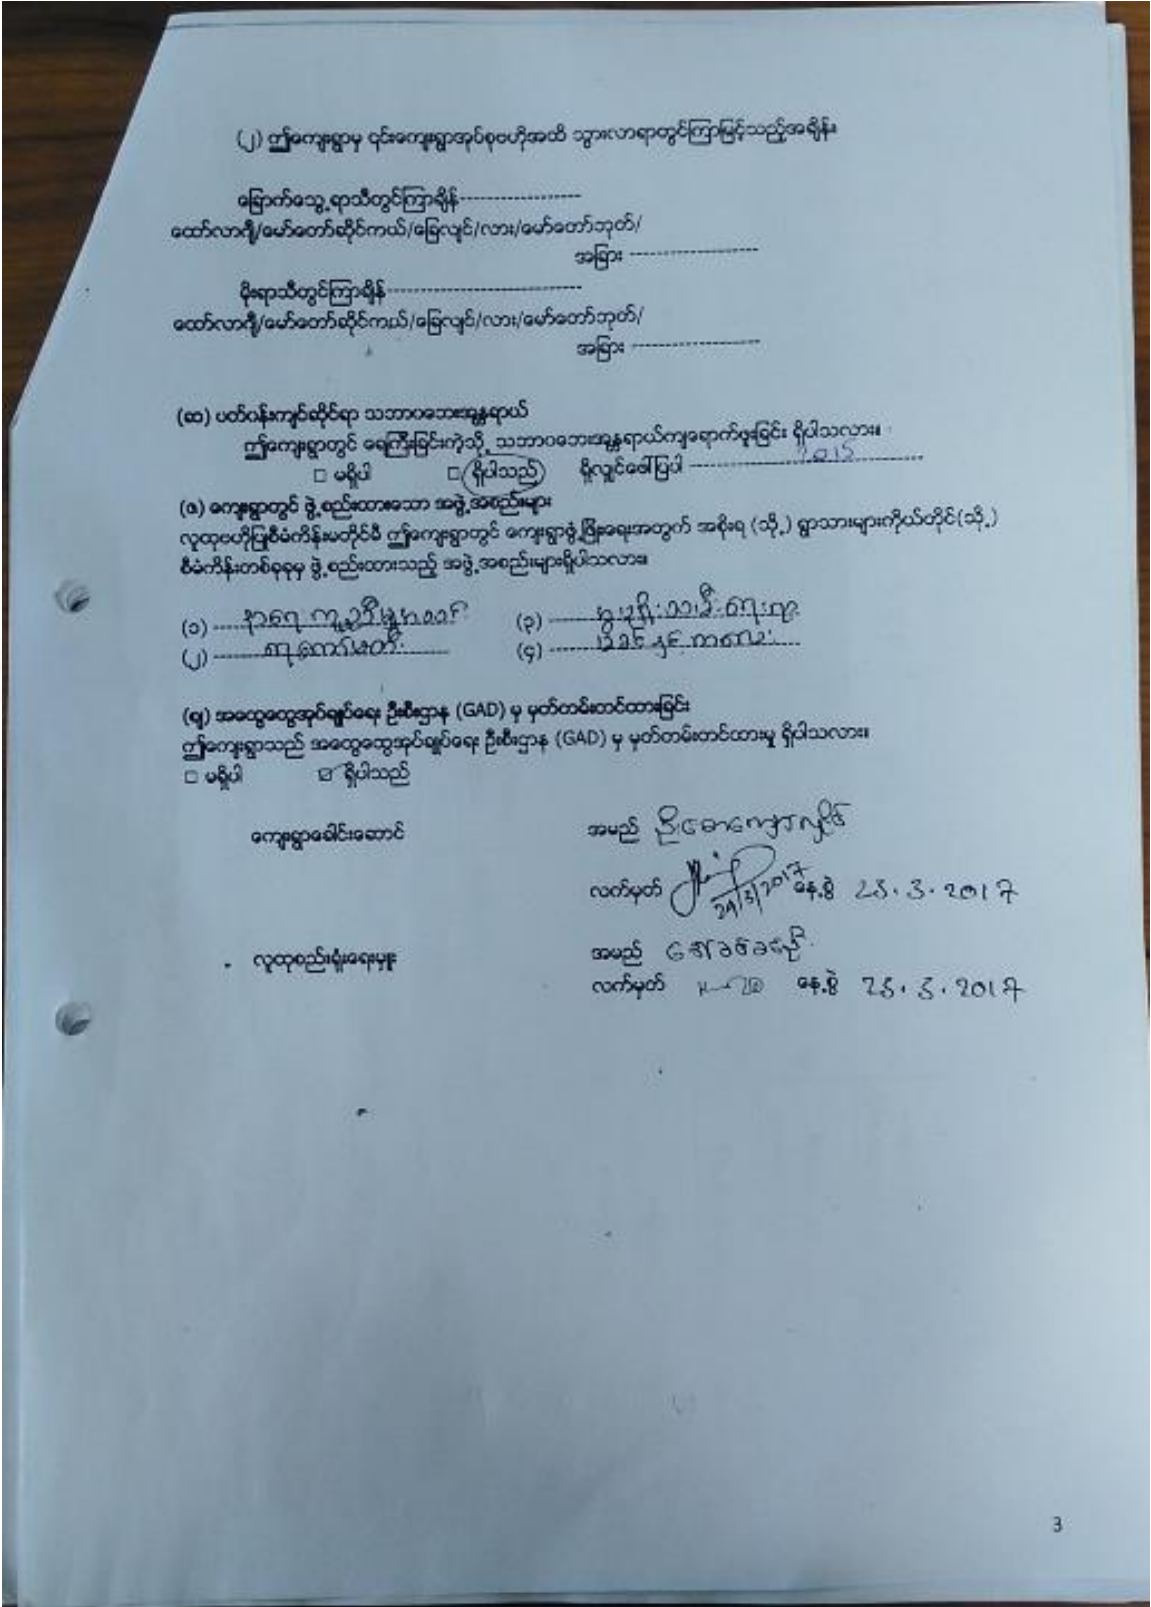 (၂) ဤကျေးရွာမှ ၎င်းကျေးရွာအုပ်စုဗဟိုအထိ သွားလာရာတွင်ကြာမြင့်သည့်အချိန်။
ခြောက်သွေ့ရာသီတွင်ကြာချိန်-------------------
ထော်လာဂျီ/မော်တော်ဆိုင်ကယ်/ခြေလျင်/လား/မော်တော်ဘုတ်/
အခြား --------------------
မိုးရာသီတွင်ကြာချိန်------------------------------
ထော်လာဂျီ/မော်တော်ဆိုင်ကယ်/ခြေလျင်/လား/မော်တော်ဘုတ်/
အခြား --------------------
(ဆ) ပတ်ဝန်းကျင်ဆိုင်ရာ သဘာဝဘေးအန္တရာယ်
ဤကျေးရွာတွင် ရေကြီးခြင်းကဲ့သို့ သဘာဝဘေးအန္တရာယ်ကျရောက်ဖူးခြင်း ရှိပါသလား။
□ မရှိပါ □ ရှိပါသည် ရှိလျှင်ဖေါ်ပြပါ ---------------- 2015 ----------
(ဇ) ကျေးရွာတွင် ဖွဲ့စည်းထားသော အဖွဲ့အစည်းများ
လူထုဗဟိုပြုစီမံကိန်းမတိုင်မီ ဤကျေးရွာတွင် ကျေးရွာဖွံ့ဖြိုးရေးအတွက် အစိုးရ (သို့) ရွာသားများကိုယ်တိုင်(သို့)
စီမံကိန်းတစ်ခုခုမှ ဖွဲ့စည်းထားသည့် အဖွဲ့အစည်းများရှိပါသလား။
(၁) နာရေး ကူညီမှုအသင်း (၃)
(၂) (၄) မိခင်နှင့် ကလေး
(ဈ) အထွေထွေအုပ်ချုပ်ရေး ဦးစီးဌာန (GAD) မှ မှတ်တမ်းတင်ထားခြင်း
ဤကျေးရွာသည် အထွေထွေအုပ်ချုပ်ရေး ဦးစီးဌာန (GAD) မှ မှတ်တမ်းတင်ထားမှု ရှိပါသလား။
□ မရှိပါ ☑ ရှိပါသည်
ကျေးရွာခေါင်းဆောင် အမည်
လက်မှတ် 29/3/2017 နေ့စွဲ 25.3.2017
လူထုစည်းရုံးရေးမှူး အမည်
လက်မှတ် နေ့စွဲ 25.3.2017
3